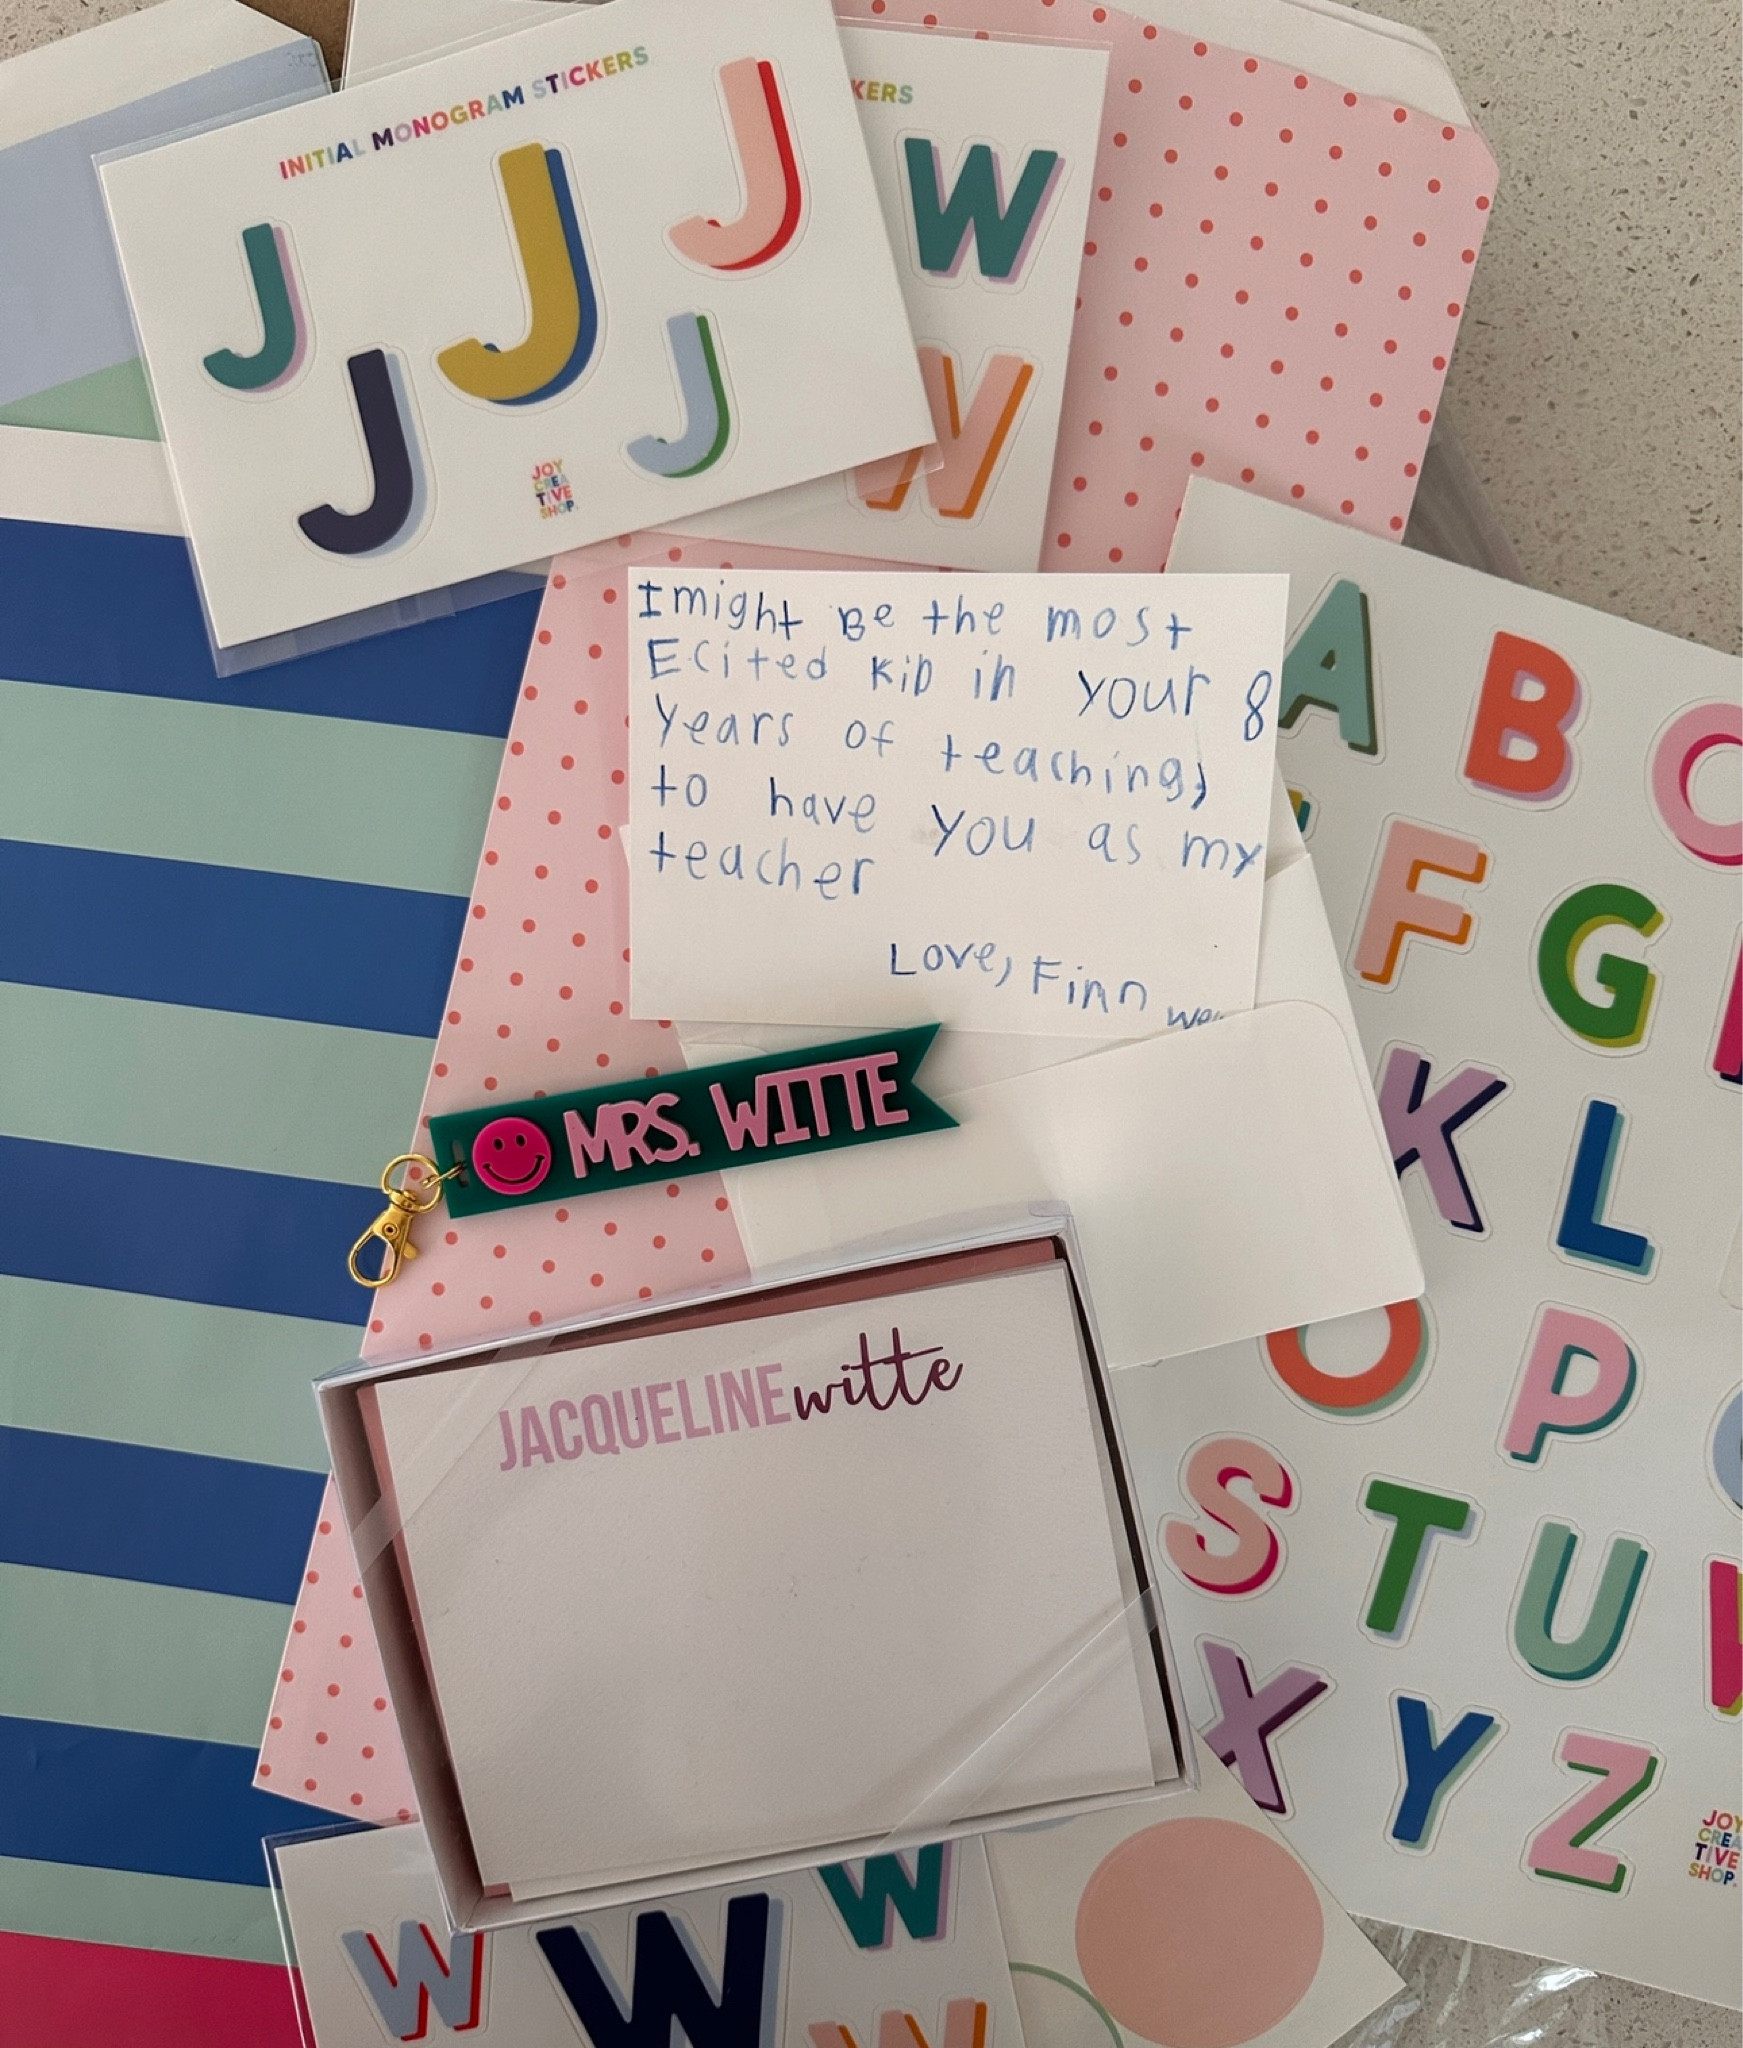 INITIAL MONOGRAM STICKERS
J
J
J
J
J
JOY
CREA
TIVE
SHOP.
KERS
W
W
I might Be the most
Ecited kid in your 8
years of teaching,
to have you as my
teacher
Love, Finn
MRS. WITTE
JACQUELINE witte
A B C
F G
K L
O P
S T U
X Y Z
JOY
CREA
TIVE
SHOP.
W W W
W